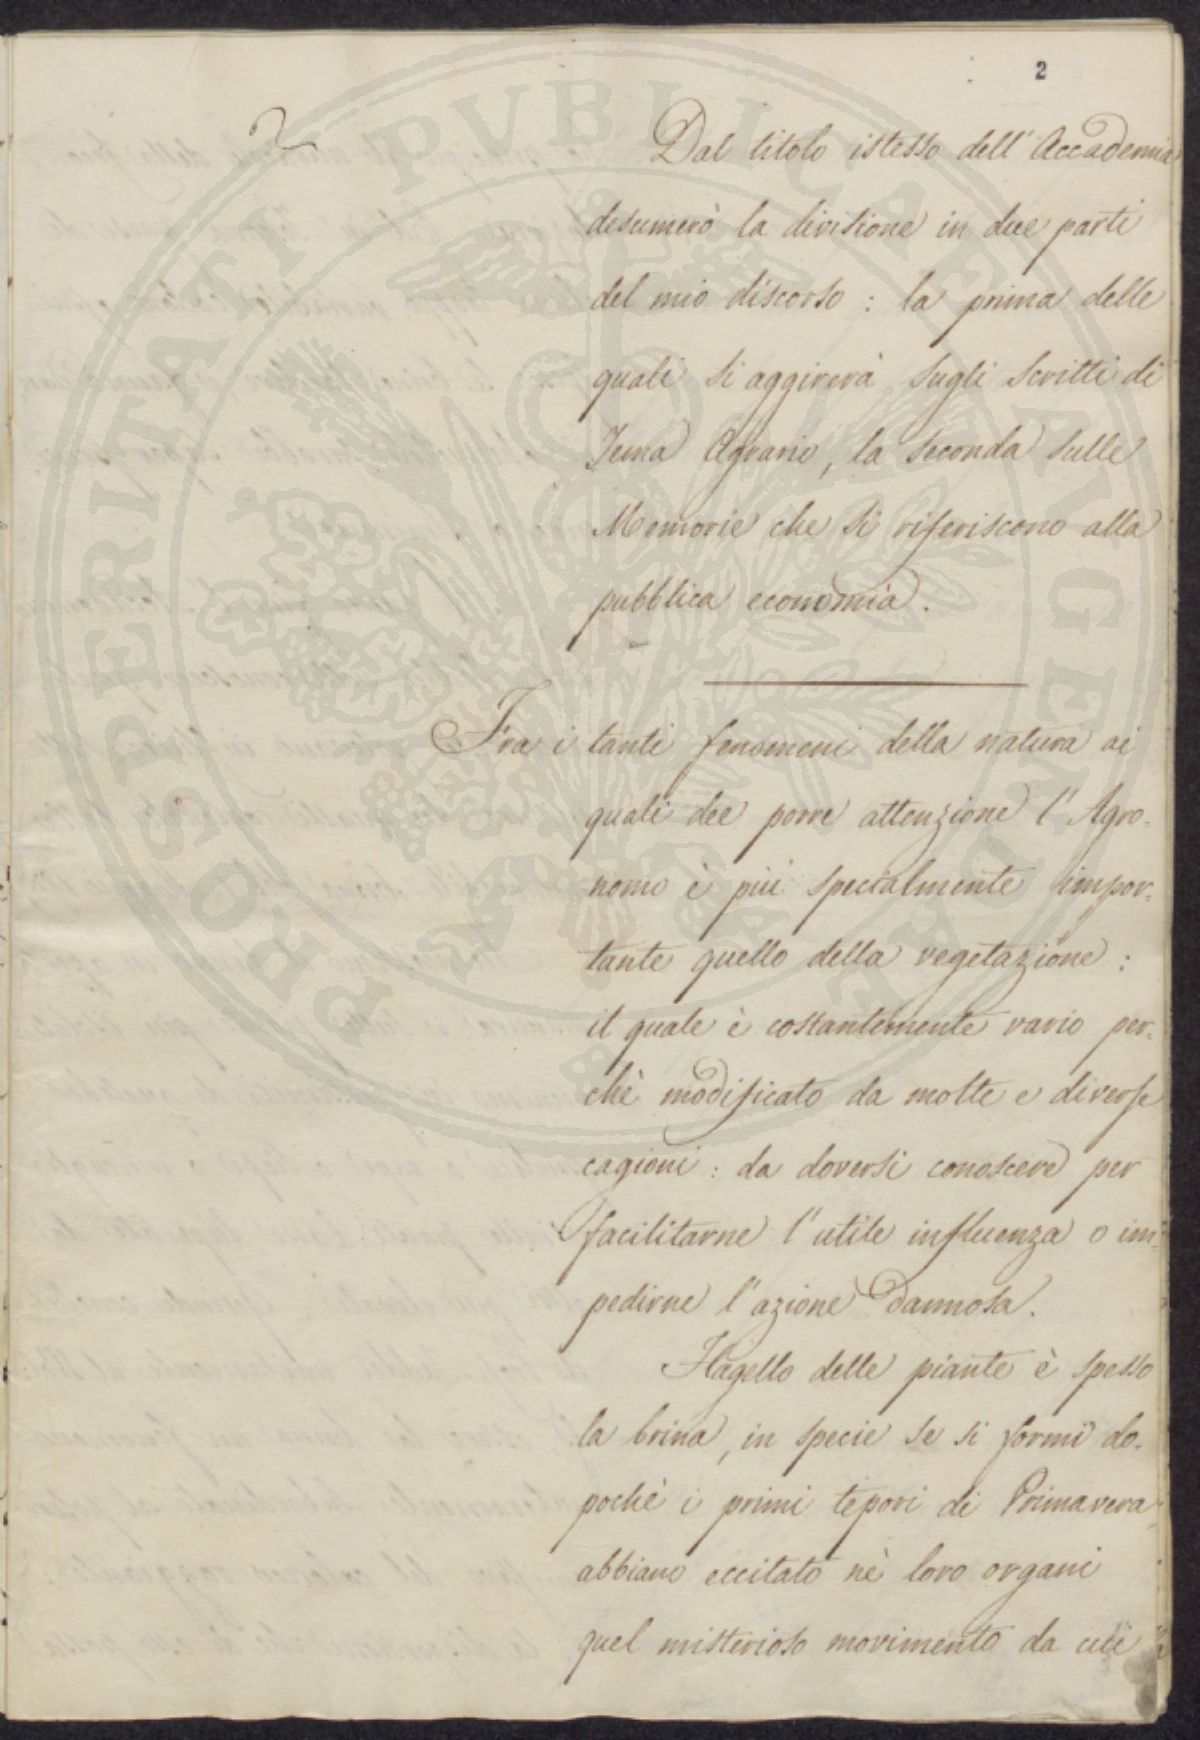 2
2
Dal titolo istesso dell'Accademia
desumerò la divisione in due parti
del mio discorso : la prima delle
quali si aggirerà sugli scritti di
Tema Agrario, la seconda sulle
Memorie che si riferiscono alla
pubblica economia.
Fra i tanti fenomeni della natura ai
quali dee porre attenzione l'Agro-
nomo è più specialmente impor-
tante quello della vegetazione :
il quale è costantemente vario per-
chè modificato da molte e diverse
cagioni : da doversi conoscere per
facilitarne l'utile influenza o im-
pedirne l'azione dannosa.
Flagello delle piante è spesso
la brina, in specie se si formi do-
pochè i primi tepori di Primavera
abbiano eccitato nè loro organi
quel misterioso movimento da cui
PROSPERITATI PVBLICAE AVGENDAE